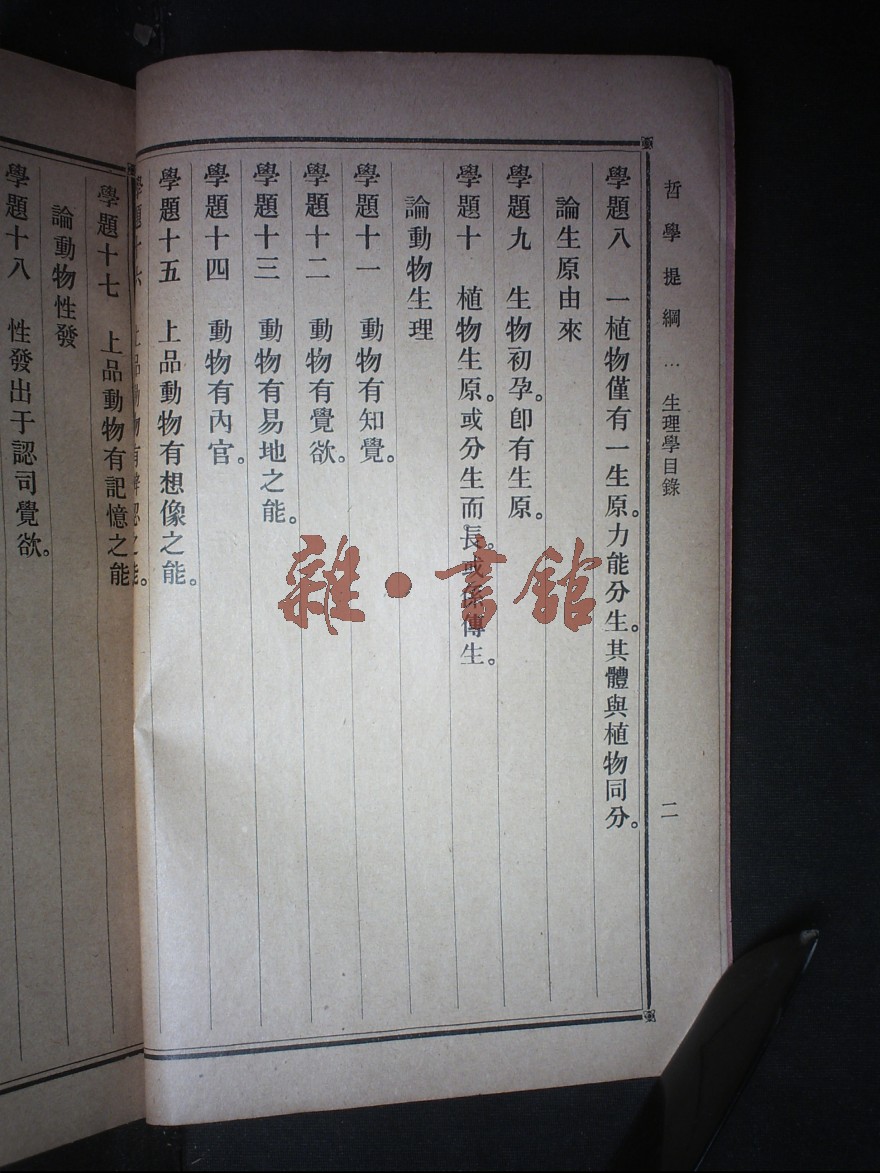 哲學提綱 … 生理學目錄
二
學題八 一植物僅有一生原。力能分生。其體與植物同分。
論生原由來
學題九 生物初孕。卽有生原。
學題十 植物生原。或分生而長。或係傳生。
論動物生理
學題十一 動物有知覺。
學題十二 動物有覺欲。
學題十三 動物有易地之能。
學題十四 動物有內官。
學題十五 上品動物有想像之能。
學題十六 上品動物有辨認之能。
學題十七 上品動物有記憶之能
論動物性發
學題十八 性發出于認司覺欲。
雜·書館